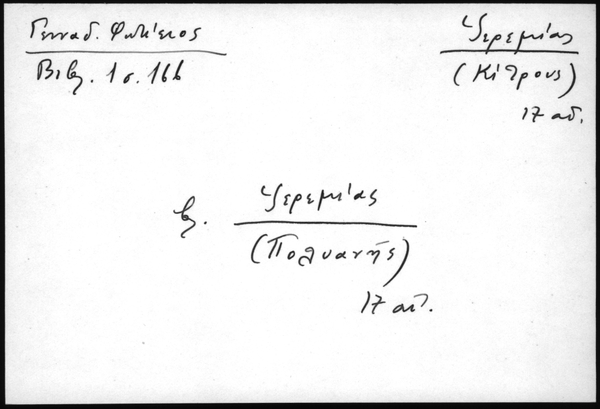 Γενναδ. Φωτίειος
Βιβλ. 1 σ. 166
Ἱερεμίας
(Κίτρους)
17 αἰ.
βλ. Ἱερεμίας
(Πολυανῆς)
17 αἰ.